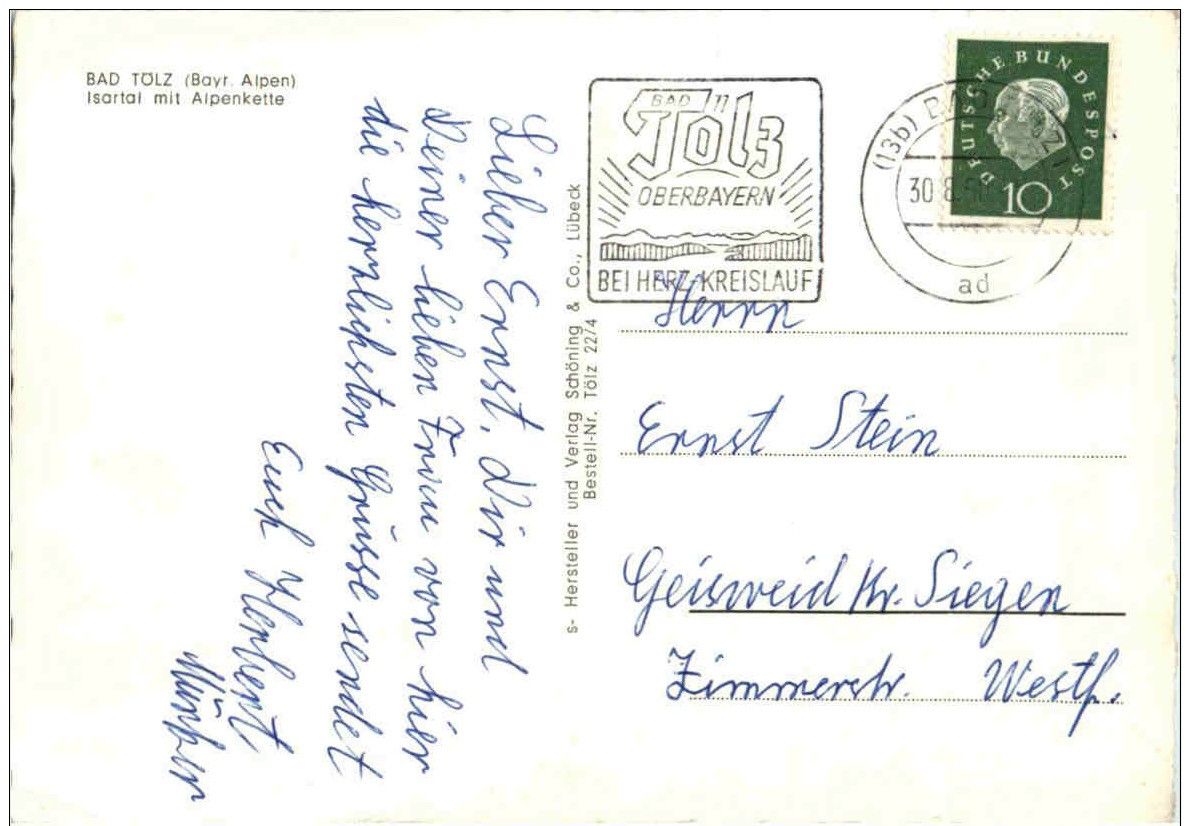 BAD TÖLZ (Bayr. Alpen)
Isartal mit Alpenkette
Lieber Ernst, Dir und
Deiner lieben Frau von hier
die herzlichsten Grüsse sendet
Euch Herbert
s- Hersteller und Verlag Schöning & Co., Lübeck
Bestell-Nr. Tölz 22/4
BAD
Tölz
OBERBAYERN
BEI HERZ-KREISLAUF
(13b) BAD
30.8.
ad
DEUTSCHE BUNDESPOST
10
Herrn
Ernst Stein
Geisweid Kr. Siegen
Zimmerstr. Westf.